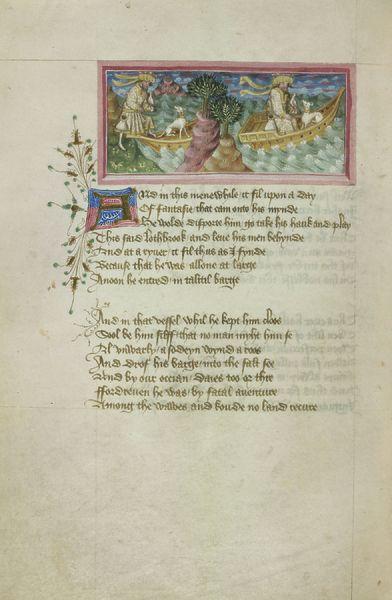 And in this menewhile it fil upon a day
Of fantasie that cam onto his mynde
He wolde disporte him go take his hauk and play
This said Lothbrook and leve his men behynde
And at a ryver it fil thus as I fynde
Because that he was allone at large
Anoon he entred in
And in that vessel whil he kept him cloos
Sool be him silff that no man myht him se
Al unwarly a sodeyn wynd a roos
And drof his barge into the salt see
And by our occian daies too or thre
Fordreven he was by fatal aventure
Among the wawes and koude no land recure